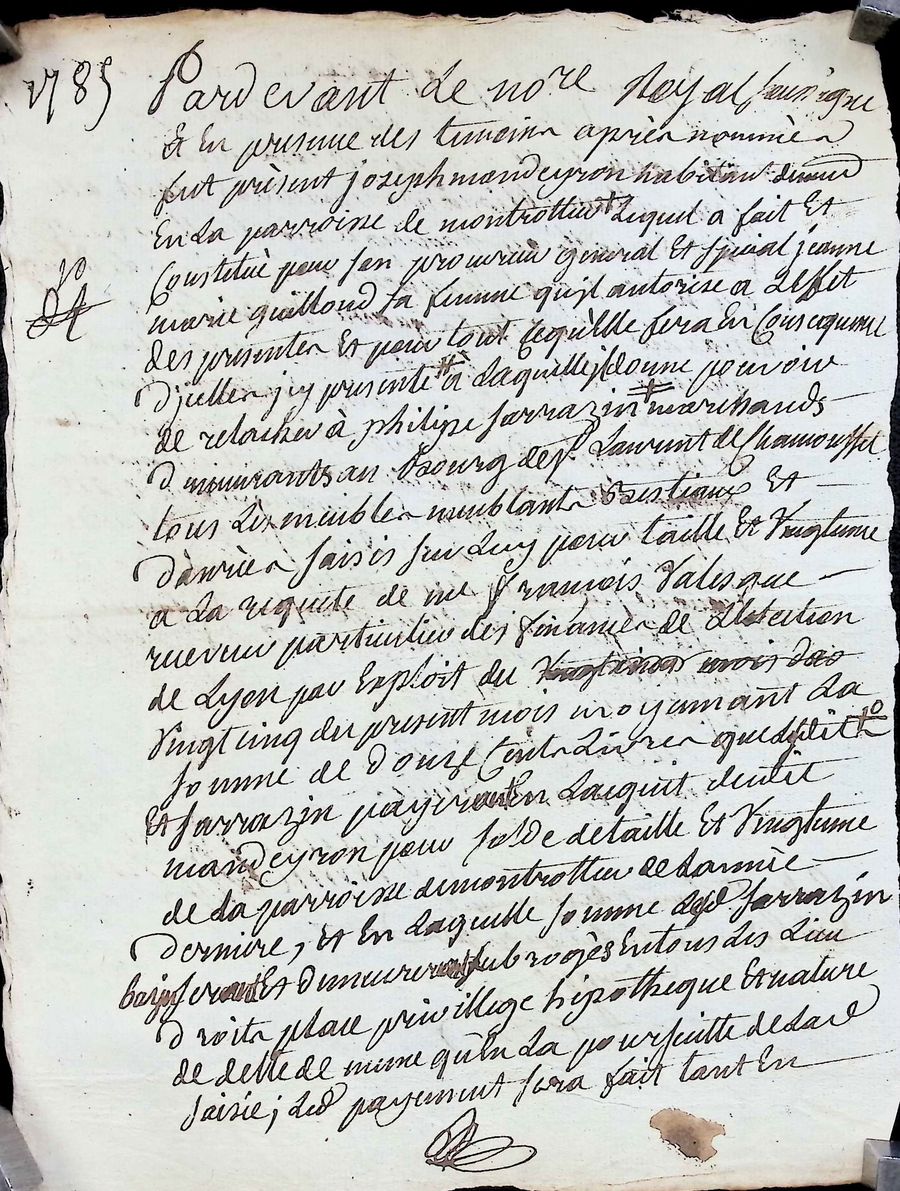 1785 Pardevant Le nore Royal soussigne
Et En presence des temoins après nommès
fut présent joseph mandeyron habitant demeurt
En La parroisse de montrottier Lequel a fait Et
Constitué pour son procureur general Et spécial jeanne
marie guilloud sa femme qu'jl autorise a L'effet
des presentes Et pour tout ce qu'elle fera En Conscequence
D'jcelles jcy presente à Laquelle jl donne pouvoir
de relacher à philipe sarrazin marchands
Demeurants au Bourg de st Laurent de Chamousset
tous Les meubles meublants Bestiaux Et
Danrées saisis sur Luy pour taille Et Vingtieme
a La requete de me françois Valesque
receveur particulier des finances de L'élection
de Lyon par Exploit du
Vingt cinq du present mois moyennant La
somme de Douze Cents Livres que Ledit
Et sarrazin payeront En L'acquit dudit
mandeyron pour solde de taille Et Vingtieme
de La parroisse de montrottier de L'année
Derniere, Et En Laquelle somme Led sarrazin
Et demeureront subrogès En tous Les Lieu
Droits place privillege hipotheque Et nature
de dette de meme qu'En La poursuitte de Lad
saisie; Led payement sera fait tant En